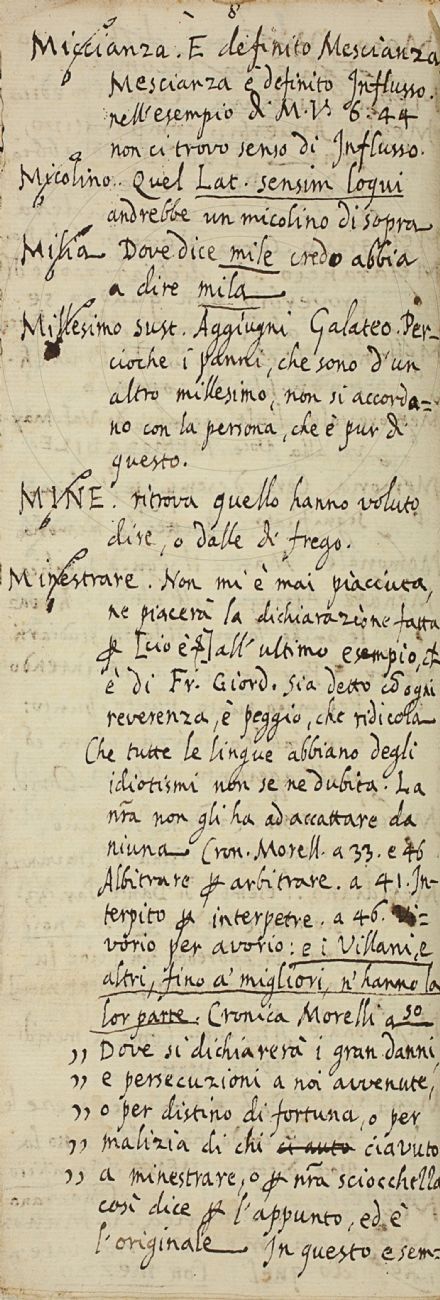 8
Miccianza. È definito Mescianza
Mescianza è definito Influsso.
nell'esempio di M.V. 6. 44
non ci trovo senso di Influsso.
Micolino. Quel Lat. sensim loqui
andrebbe un micolino di sopra
Milia Dove dice mile credo abbia
a dire mila
Millesimo sust. Aggiugni Galateo. Per=
cioche i panni, che sono d'un
altro millesimo, non si accorda=
no con la persona, che è pur di
questo.
MINE. ritrova quello hanno voluto
dire, o dalle di frego.
Minestrare. Non mi è mai piaciuta,
ne piacerà la dichiarazione fatta
ꝑ [cio è ꝑ] all'ultimo esempio, ch
è di Fr. Giord. sia detto cō ogni
reverenza, è peggio, che ridicola
Che tutte le lingue abbiano degli
idiotismi non se ne dubita. La
nr̃a non gli ha ad accattare da
niuna Cron. Morell. a 33. e 46
Albitrare ꝑ arbitrare. a 41. In=
terpito ꝑ interpetre. a 46. Vi=
vorio per avorio: e i Villani, e
altri, fino a' migliori, n'hanno la
lor parte. Cronica Morelli a 50
„ Dove si dichiarerà i gran danni,
„ e persecuzioni a noi avvenute,
„ o per distino di fortuna, o per
„ malizia di chi ci auto ciavuto
„ a minestrare, o ꝑ nr̃a sciocchella
così dice ꝑ l'appunto, ed è
l'originale In questo esem=